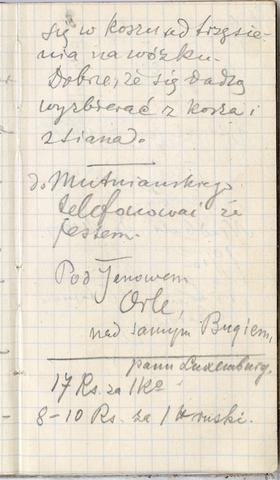 się w koszu od trzęsie-
nia na wózku.
Dobrze, że się dadzą
wyzbierać z kosza i
z siana.
do Mutniańskiego
telefonować że
jestem.
Pod Janowem
Orle,
nad samym Bugiem,
panu Luxemburg.
17 Rs. za 1 Ko
8-10 Rs. za 1 ruski.